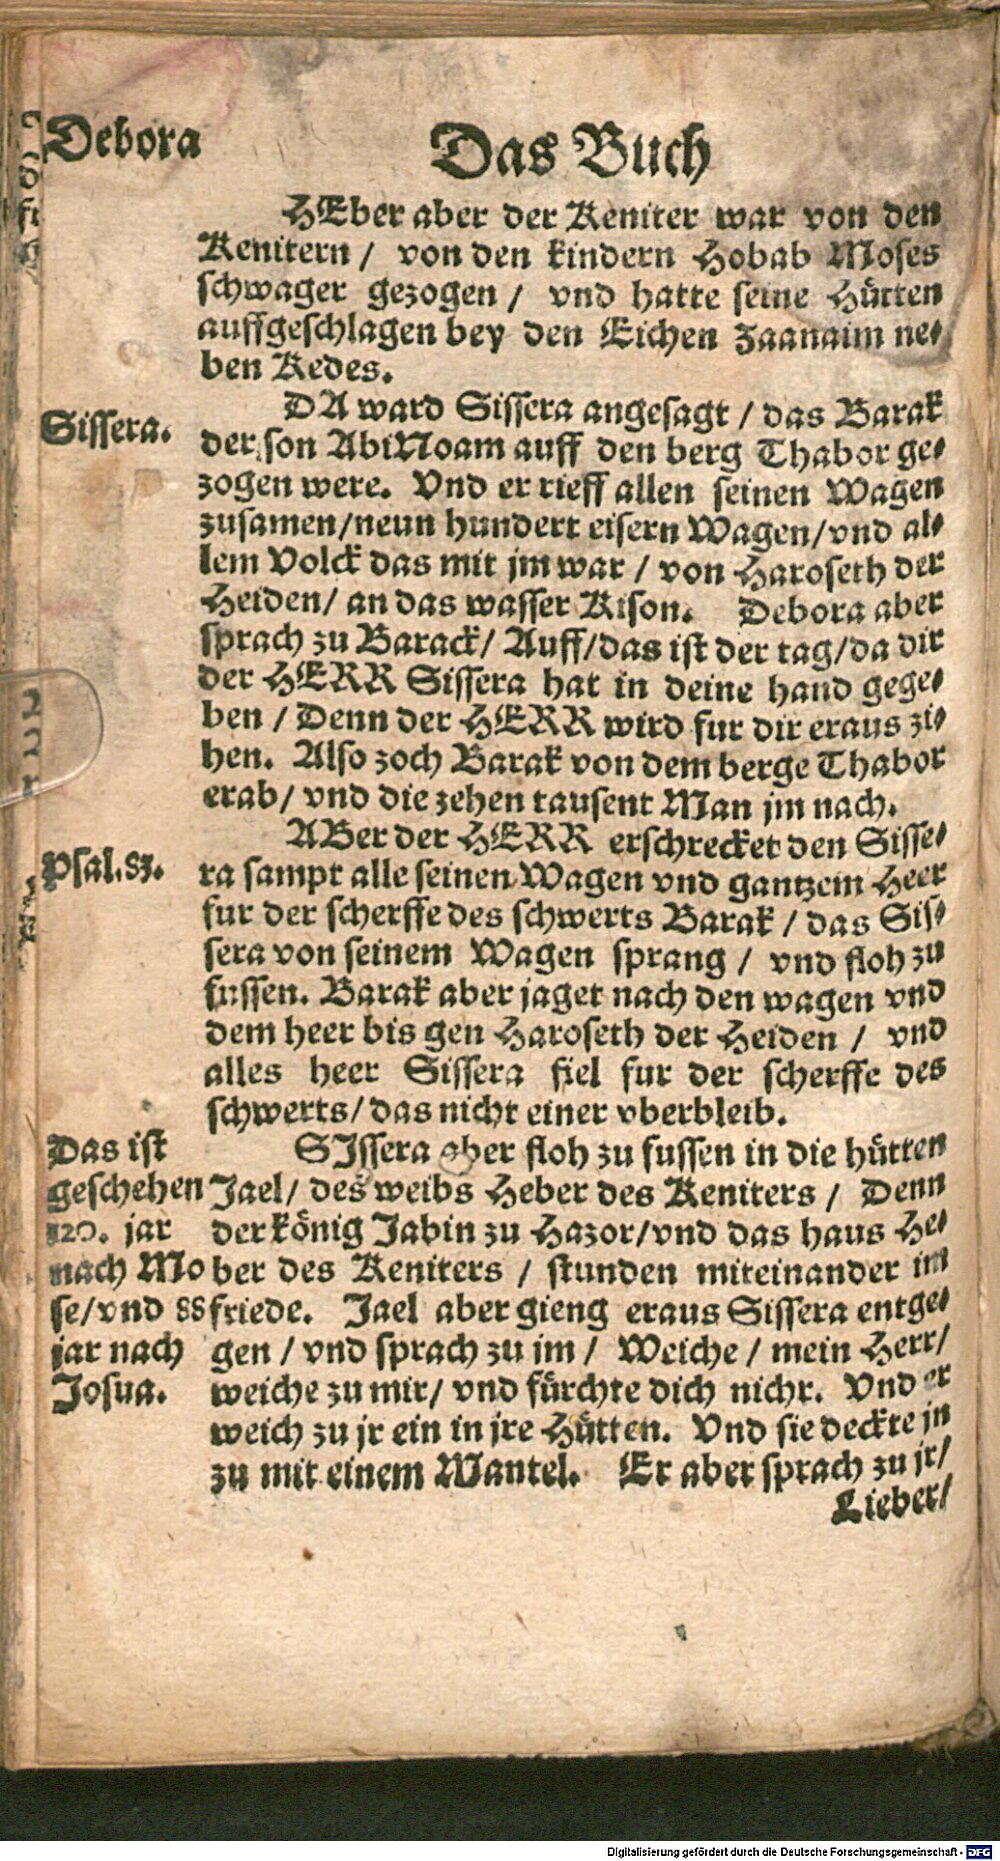 Debora
Das Buch
HEber aber der Keniter war von den
Kenitern / von den kindern Hobab Moses
schwager gezogen / vnd hatte seine Hütten
auffgeschlagen bey den Eichen Zaanaim ne⸗
ben Kedes.
Sissera.
DA ward Sissera angesagt / das Barak
der son AbiNoam auff den berg Thabor ge⸗
zogen were. Vnd er rieff allen seinen Wagen
zusamen/neun hundert eisern Wagen/vnd al⸗
lem Volck das mit jm war / von Haroseth der
Heiden/ an das wasser Kison. Debora aber
sprach zu Barack/ Auff/das ist der tag/da dir
der HERR Sissera hat in deine hand gege⸗
ben / Denn der HERR wird fur dir eraus zi⸗
hen. Also zoch Barak von dem berge Thabor
erab/ vnd die zehen tausent Man jm nach.
Psal.83.
ABer der HERR erschrecket den Sisse⸗
ra sampt alle seinen Wagen vnd gantzem Heer
fur der scherffe des schwerts Barak / das Sis⸗
sera von seinem Wagen sprang / vnd floh zu
fussen. Barak aber jaget nach den wagen vnd
dem heer bis gen Haroseth der Heiden / vnd
alles heer Sissera fiel fur der scherffe des
schwerts/ das nicht einer vberbleib.
Das ist
geschehen
120. jar
nach Mo
se/vnd 88
jar nach
Josua.
SIssera aber floh zu fussen in die hütten
Jael/ des weibs Heber des Keniters / Denn
der könig Jabin zu Hazor/vnd das haus He⸗
ber des Keniters / stunden miteinander im
friede. Jael aber gieng eraus Sissera entge⸗
gen / vnd sprach zu jm / Weiche / mein Herr/
weiche zu mir/ vnd fürchte dich nichr. Vnd er
weich zu jr ein in jre Hütten. Vnd sie deckte jn
zu mit einem Mantel. Er aber sprach zu jr/
Lieber/
Digitalisierung gefördert durch die Deutsche Forschungsgemeinschaft - DFG